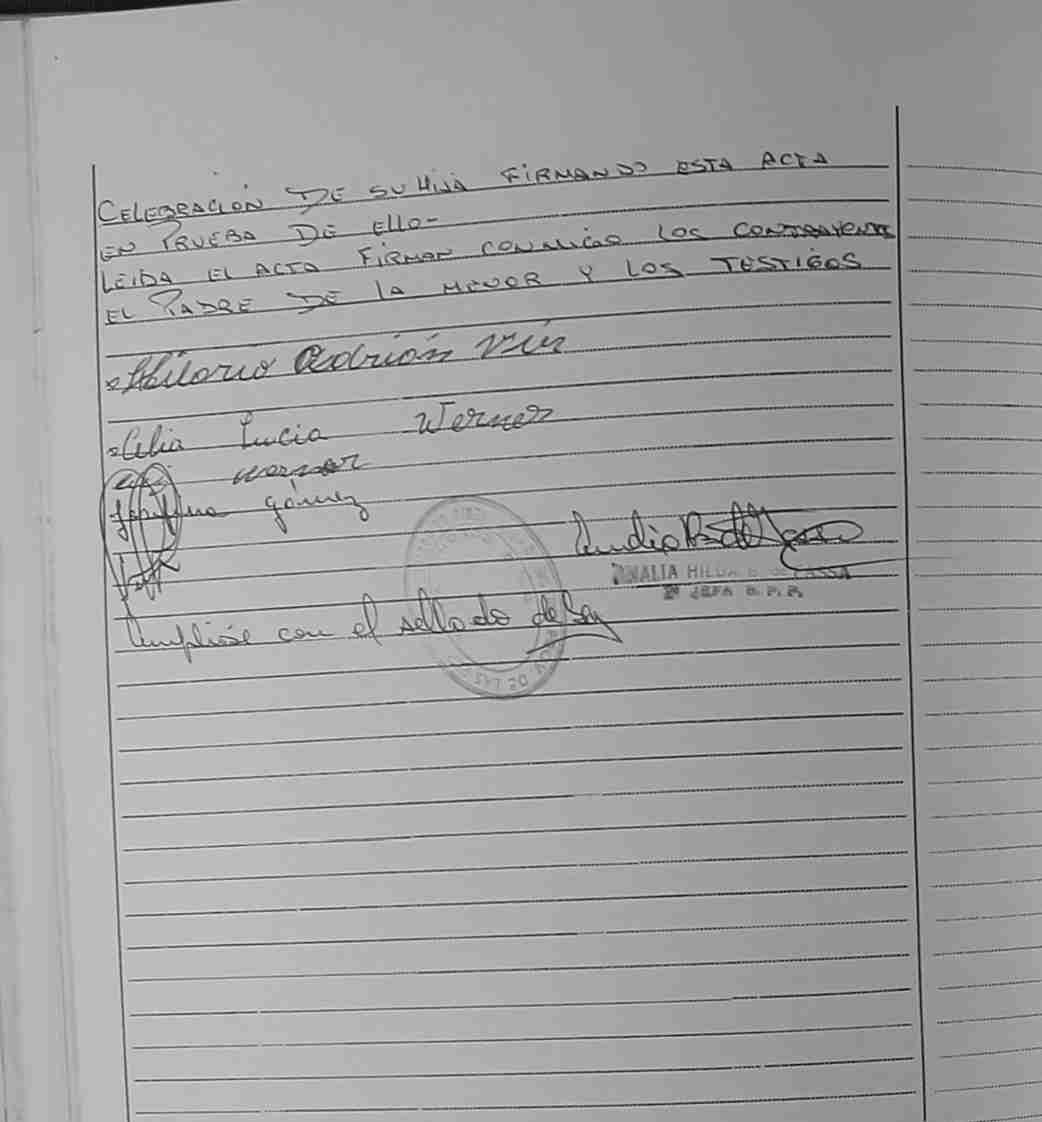 CELEBRACION DE SU HIJA FIRMANDO ESTA ACTA
EN PRUEBA DE ELLO-
LEIDA EL ACTA FIRMAN CONMIGO LOS CONTRAYENTES
EL PADRE DE LA MENOR Y LOS TESTIGOS
Hilario Adrión
Celia Lucia Werner
Werner
gómez
HILDA
JEFA
Cumplióse con el sellado de ley
DE LAS